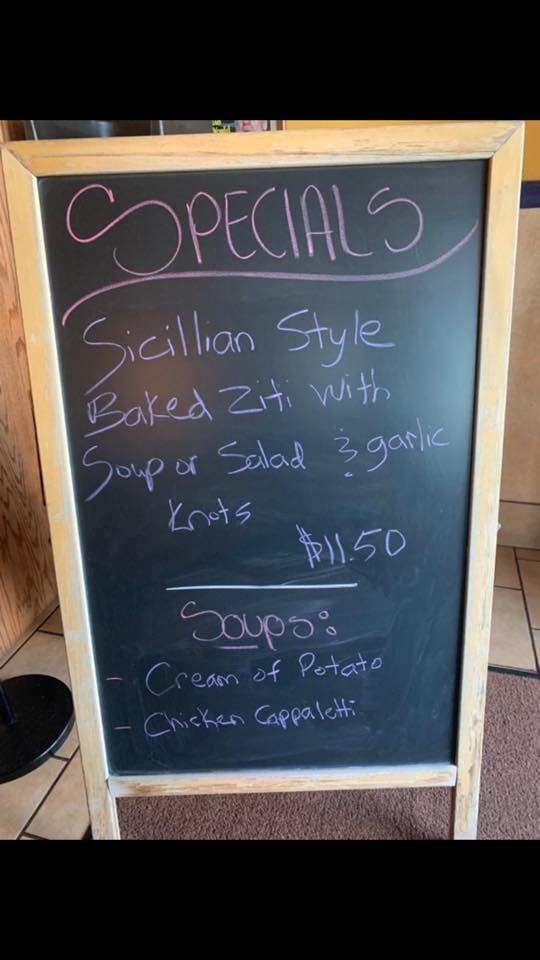 SPECIALS
Sicillian Style
Baked Ziti with
Soup or Salad & garlic
knots
$11.50
Soups:
- Cream of Potato
- Chicken Cappaletti